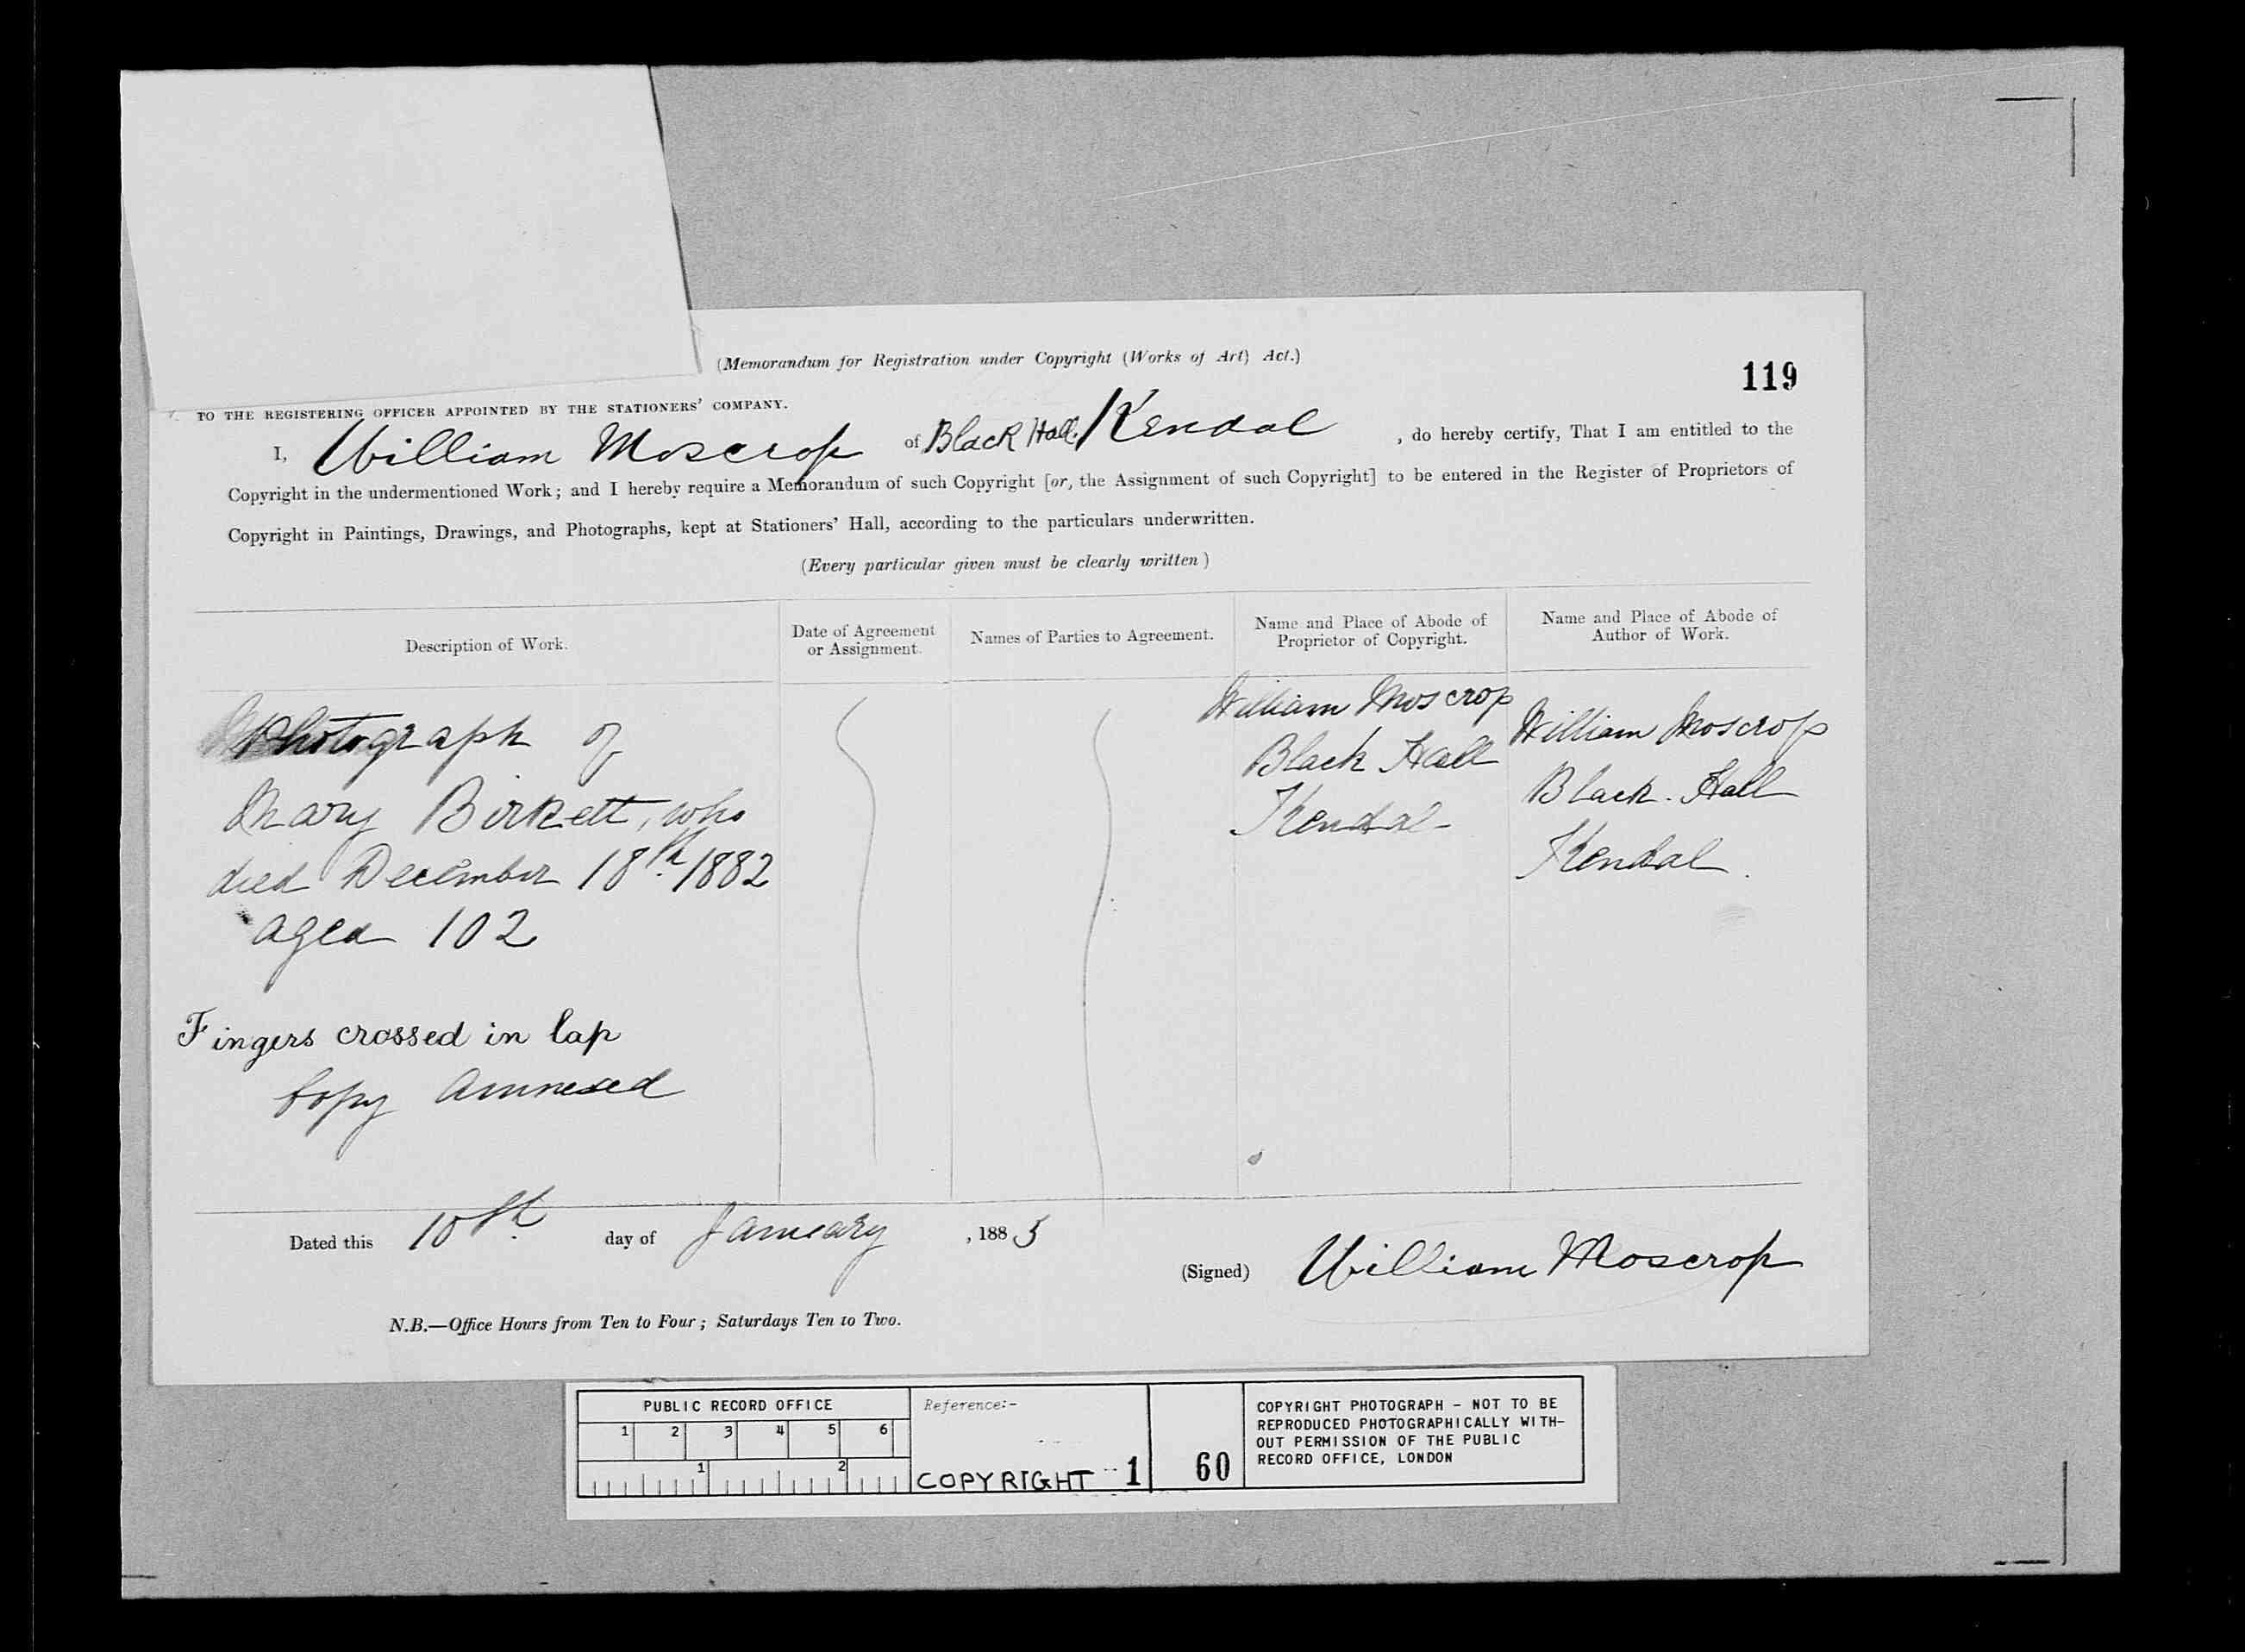 (Memorandum for Registration under Copyright (Works of Art) Act.)
119
TO THE REGISTERING OFFICER APPOINTED BY THE STATIONERS' COMPANY.
I, William Moscrop of Black Hall. Kendal , do hereby certify, That I am entitled to the
Copyright in the undermentioned Work; and I hereby require a Memorandum of such Copyright [or, the Assignment of such Copyright] to be entered in the Register of Proprietors of
Copyright in Paintings, Drawings, and Photographs, kept at Stationers' Hall, according to the particulars underwritten.
(Every particular given must be clearly written)
Description of Work.
Date of Agreement
or Assignment.
Names of Parties to Agreement.
Name and Place of Abode of
Proprietor of Copyright.
Name and Place of Abode of
Author of Work.
Photograph of
Mary Birkett, who
died December 18th 1882
aged 102
Fingers crossed in lap
Copy annexed
William Moscrop
Black Hall
Kendal
William Moscrop
Black. Hall
Kendal.
Dated this 10th day of January , 1883
(Signed) William Moscrop
N.B.—Office Hours from Ten to Four; Saturdays Ten to Two.
PUBLIC RECORD OFFICE
1 2 3 4 5 6
1 2
Reference:-
COPYRIGHT 1
60
COPYRIGHT PHOTOGRAPH - NOT TO BE
REPRODUCED PHOTOGRAPHICALLY WITH-
OUT PERMISSION OF THE PUBLIC
RECORD OFFICE, LONDON